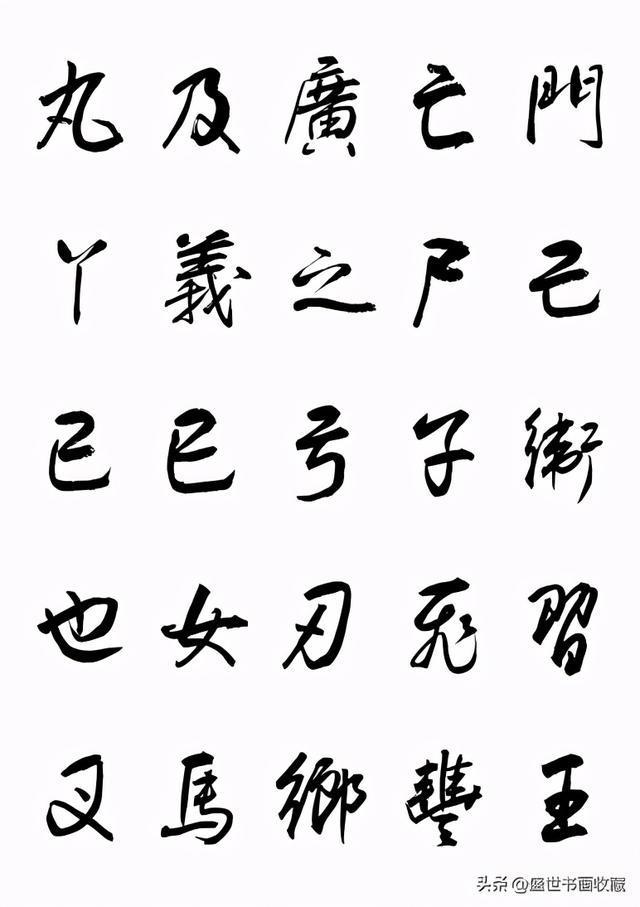 丸及廣亡門
丫義之尸己
已巳亏子衛
也女刃飛習
叉馬鄉豐王
头条 @盛世书画收藏